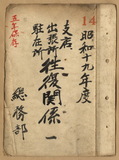 14
昭和十九年度
支店
出張所
駐在所
往復関係
一
五年保存
総務部